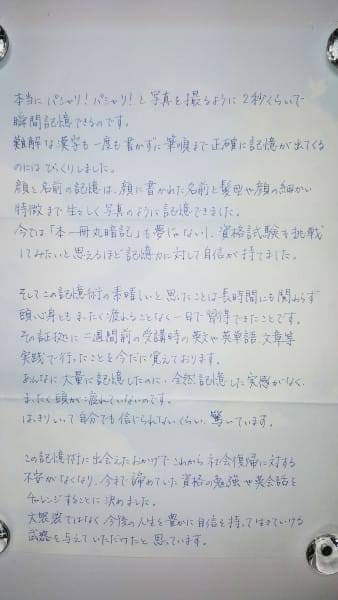 本当にパシャリ!パシャリ!と写真を撮るように2秒くらいで
瞬間記憶できるのです。
難解な漢字も一度も書かずに筆順まで正確に記憶が出てくる
のにはびっくりしました。
顔と名前の記憶は、顔に書かれた名前と髪型や顔の細かい
特徴まで生々しく写真のように記憶できました。
今では「本一冊丸暗記」も夢じゃない!、資格試験も挑戦
してみたいと思えるほど記憶力に対して自信が持てました。
そしてこの記憶術の素晴しいと思ったことは長時間にも関わらず
頭も心身もまったく疲れることなく一日で習得できたことです。
その証拠に二週間前の受講時の英文や英単語、文章等
実践で行ったことを今だに覚えております。
あんなに大量に記憶したのに、全然記憶した実感がなく、
まったく頭が疲れていないのです。
はっきりいって自分でも信じられないくらい、驚いています。
この記憶術に出会えたおかげでこれから社会復帰に対する
不安がなくなり、今まで諦めていた資格の勉強や英会話を
チャレンジすることに決めました。
大袈裟ではなく今後の人生を豊かに自信を持って生きていける
武器を与えていただけたと思っています。